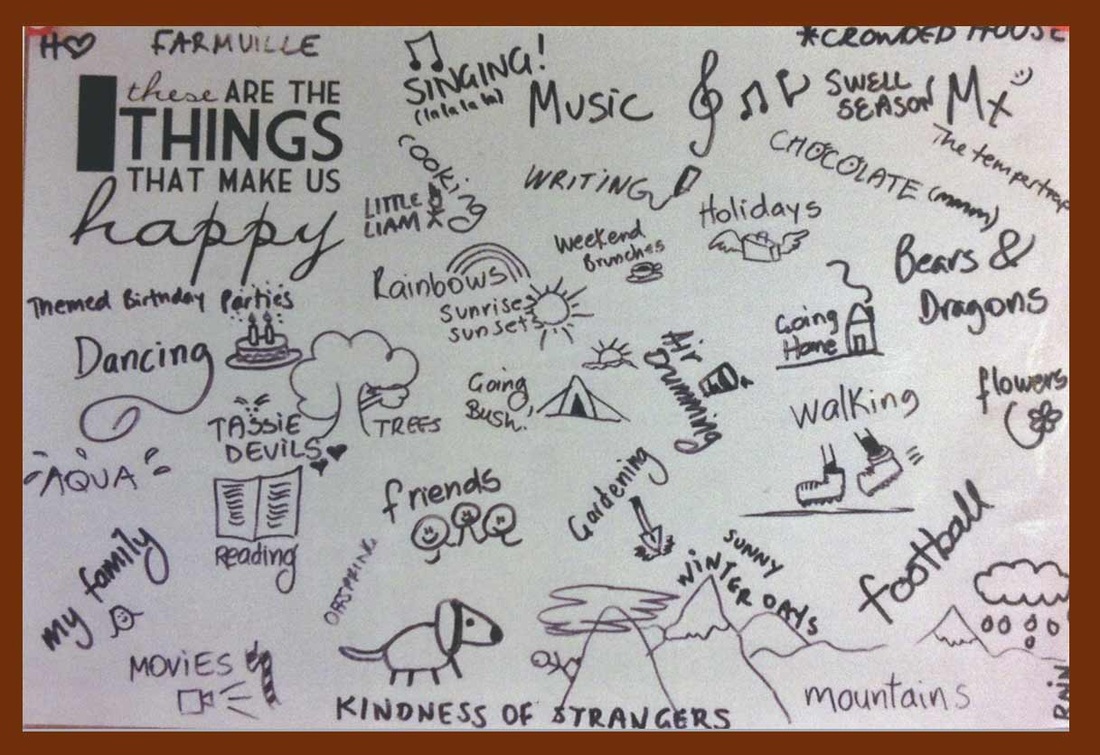 H♡
FARMVILLE
*CROWDED HOUSE
these ARE THE
THINGS
THAT MAKE US
happy
SINGING!
(la la la la)
Music
SWELL
SEASON
Mx
The tempertrap
cooking
LITTLE
LIAM
WRITING
CHOCOLATE (mmm)
Holidays
Weekend
Brunches
Bears &
Dragons
Rainbows
Sunrise
sunsets
Themed Birthday Parties
Dancing
Going
Home
Air
Drumming
Going
Bush!
TREES
TASSIE
DEVILS
Walking
flowers
AQUA
Reading
friends
Gardening
football
my family
OFFSPRING
SUNNY
WINTER DAYS
MOVIES
KINDNESS OF STRANGERS
mountains
RAIN